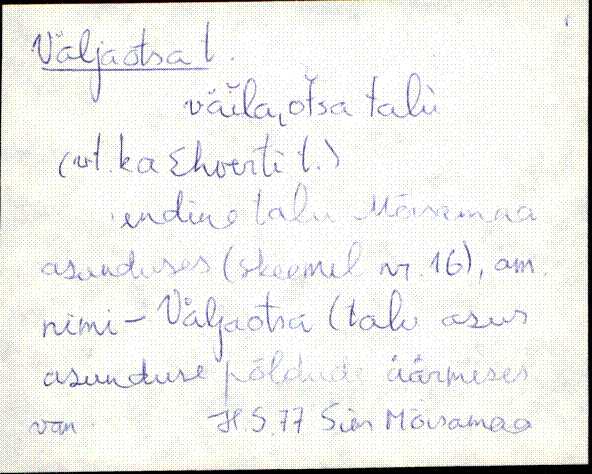 Väljaotsa t.
väi̬la,otsa talu
(vt. ka Ehverti t.)
endine talu Mõisamaa
asunduses (skeemil nr. 16), am.
nimi – Väljaotsa (talu asus
asunduse põldude äärmises
van H.S. 77 Sim Mõisamaa